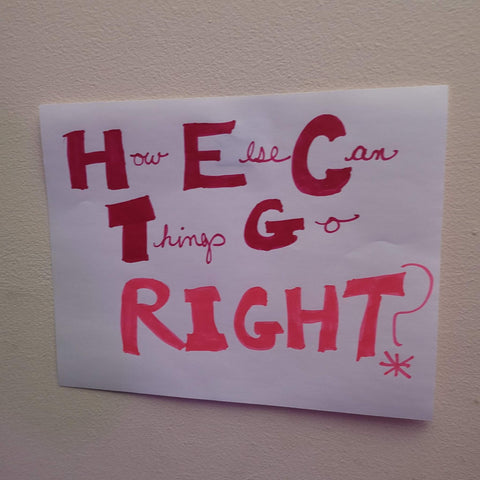 How Else Can
Things Go
RIGHT?